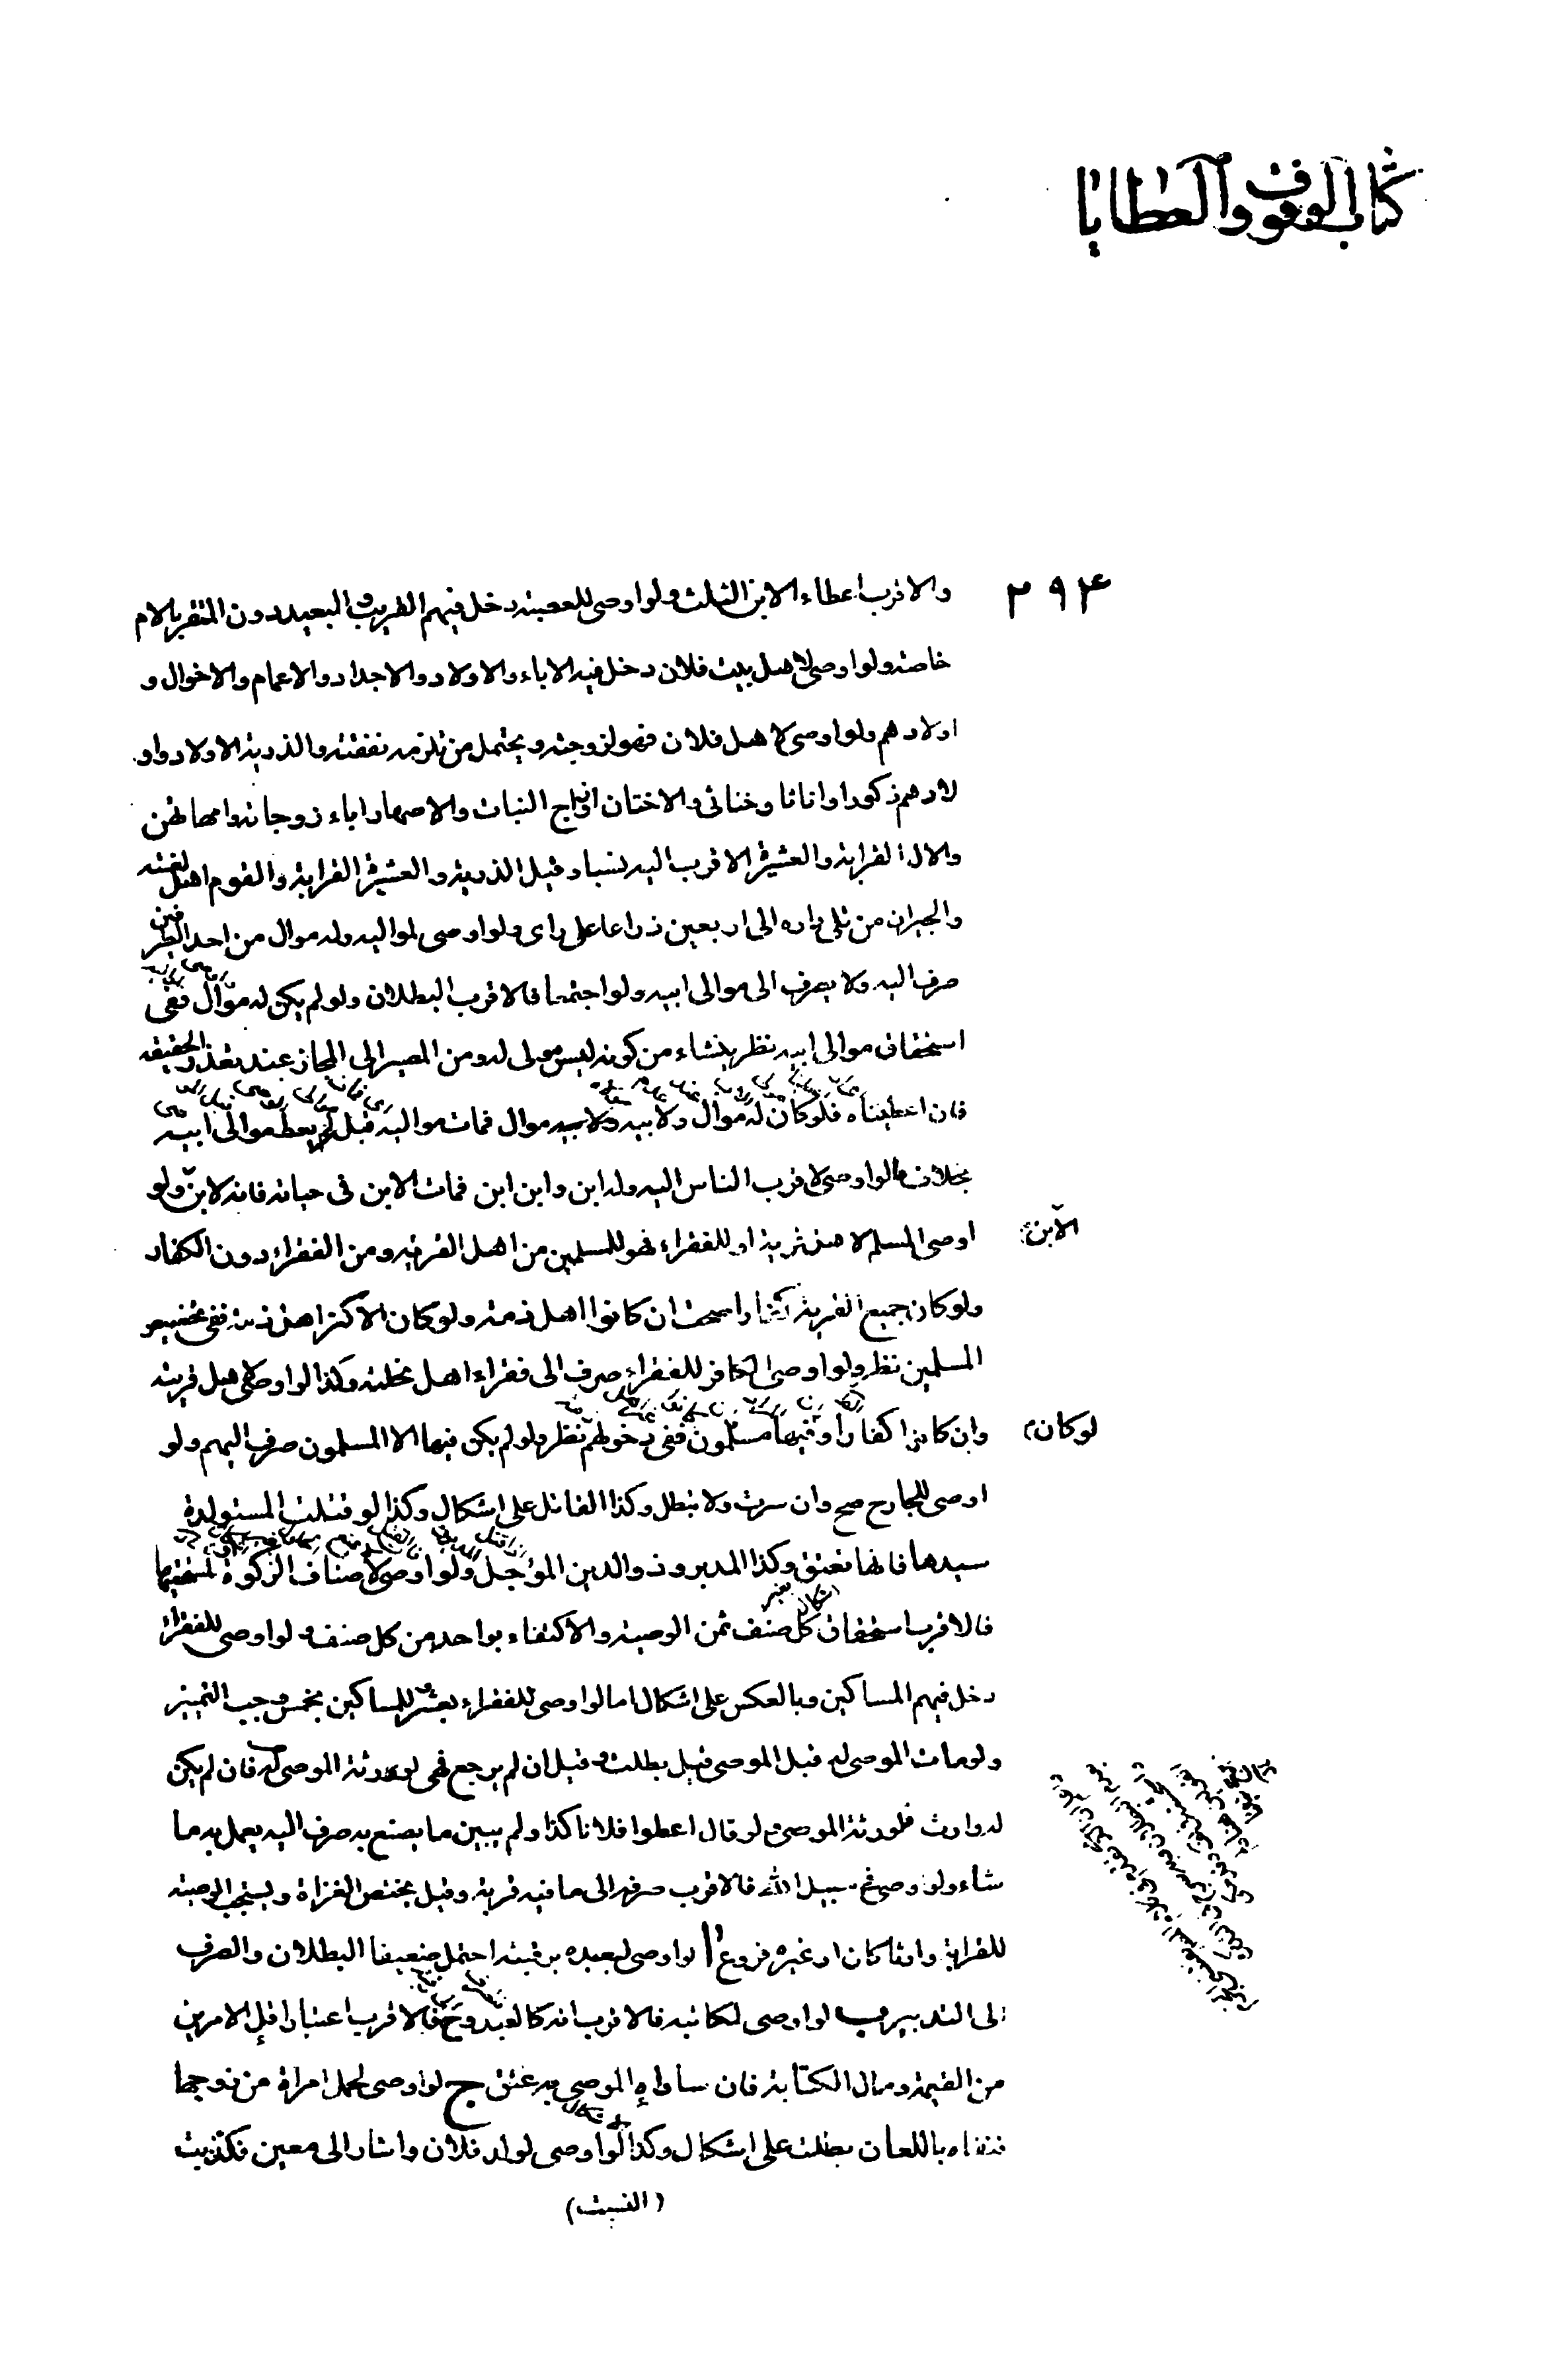 كتاب الوقوف والعطايا
۲۹۴
والاقرب اعطاء الابن الثلث ولو اوصى للعصبة دخل فيهم القريب و البعيد دون المتقرب بالام
خاصة ولو اوصى لاهل بيت فلان دخل فيه الاباء والاولاد والاجداد والاعمام والاخوال و
اولادهم ولو اوصى لاهل فلان فهو لزوجته ويحتمل من تلزمه نفقته والذرية الاولاد واو
لادهم ذكورا واناثا وخناثى والاختان ازواج البنات والاصهار اباء زوجاته وامهاتهن
والال القرابة والعشيرة الاقرب اليه نسبا وقيل الذرية والعشيرة القرابة والقوم اهل لغته
والجيران من تلى داره الى اربعين ذراعا على راى ولو اوصى لمواليه وله موال من احد الطرفين
صرف اليه ولا يصرف الى موالى ابيه ولو اجتمعا فالاقرب البطلان ولو لم يكن له موال ففى
استحقاق موالى ابيه نظر ينشاء من كونه ليس مولى له ومن المصير الى المجاز عند تعذر الحقيقة
فان اعطيناه فلو كان له موال ولابيه موال فمات مواليه قبله لم يعط موالى ابيه
بخلاف ما لو اوصى لاقرب الناس اليه وله ابن وابن ابن فمات الابن فى حياته فانه لابن ولو
الابن
اوصى المسلم لاهل قرية او للفقراء فهو للمسلمين من اهل القرية ومن الفقراء دون الكفار
ولو كان جميع القرية كفارا صحت ان كانوا اهل ذمة ولو كان الاكثر اهل ذمة ففى تخصيص
المسلمين نظر ولو اوصى الكافر للفقراء صرف الى فقراء اهل نحلته وكذا لو اوصى لاهل قريته
لو كان
وان كانوا كفارا وفيها مسلمون ففى دخولهم نظر ولو لم يكن فيها الا المسلمون صرف اليهم ولو
اوصى للجارح صح وان سرت ولا تبطل وكذا القاتل على اشكال وكذا لو قتلت المستولدة
سيدها فانها تعتق وكذا المدبر وذو الدين المؤجل ولو اوصى لاصناف الزكوة لمستحقيها
فالاقرب استحقاق كل صنف ثمن الوصية والاكتفاء بواحد من كل صنف ولو اوصى للفقراء
دخل فيهم المساكين وبالعكس على اشكال اما لو اوصى للفقراء بعشر وللمساكين بخمس وجب التمييز
ولو مات الموصى له قبل الموصى قيل بطلت وقيل ان لم يرجع فهى لورثة الموصى له فان لم يكن
له وارث فلورثة الموصى ولو قال اعطوا فلانا كذا ولم يبين ما يصنع به صرف اليه يعمل به ما
شاء ولو اوصى فى سبيل الله فالاقرب صرفه الى ما فيه قربة وقيل يختص الغزاة ويستحب الوصية
للقرابة وارثا كان او غيره فروع ا لو اوصى لعبده برقبته احتمل ضعيفا البطلان والصرف
الى التدبير ب لو اوصى لمكاتبه فالاقرب انه كالعبد وح فالاقرب اعتبار اقل الامرين
من القيمة ومال الكتابة فان ساواه الموصى به عتق ج لو اوصى لحمل امراة من زوجها
فنفاه باللعان بطلت على اشكال وكذا لو اوصى لولد فلان واشار الى معين فكذبت
(النسبة)